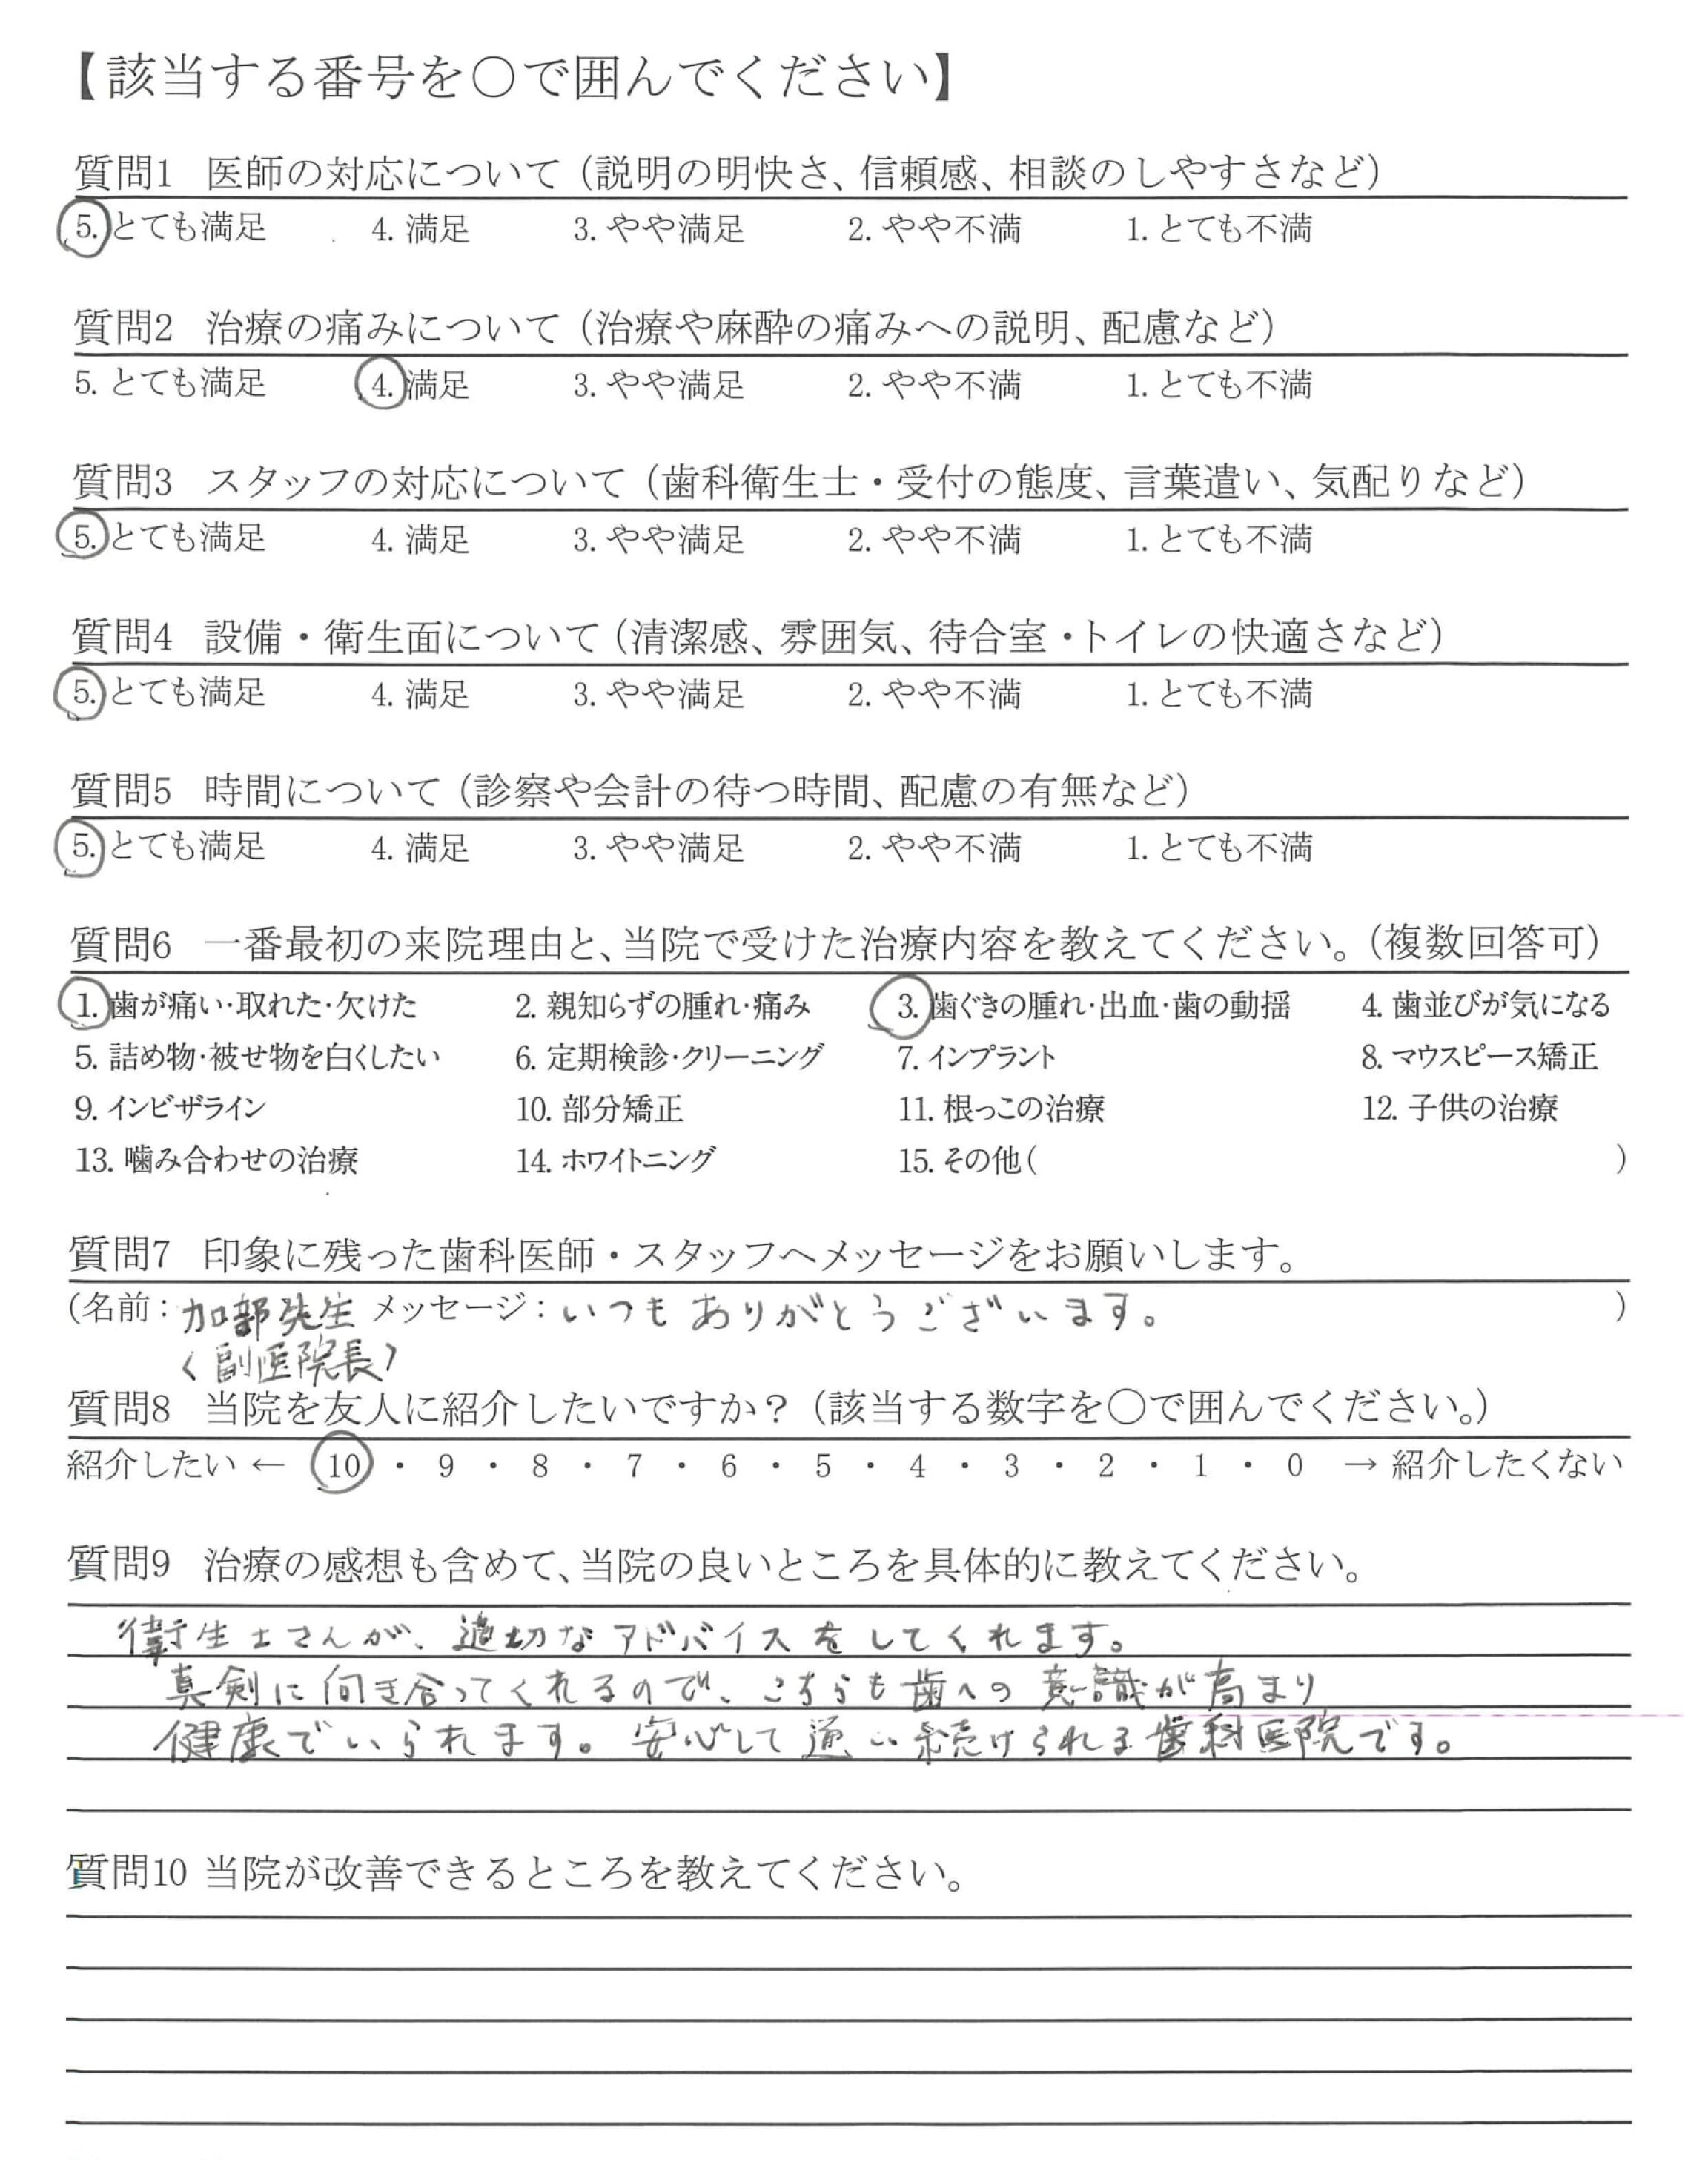 【該当する番号を〇で囲んでください】
質問1 医師の対応について（説明の明快さ、信頼感、相談のしやすさなど）
5. とても満足 4. 満足 3. やや満足 2. やや不満 1. とても不満
質問2 治療の痛みについて（治療や麻酔の痛みへの説明、配慮など）
5. とても満足 4. 満足 3. やや満足 2. やや不満 1. とても不満
質問3 スタッフの対応について（歯科衛生士・受付の態度、言葉遣い、気配りなど）
5. とても満足 4. 満足 3. やや満足 2. やや不満 1. とても不満
質問4 設備・衛生面について（清潔感、雰囲気、待合室・トイレの快適さなど）
5. とても満足 4. 満足 3. やや満足 2. やや不満 1. とても不満
質問5 時間について（診察や会計の待つ時間、配慮の有無など）
5. とても満足 4. 満足 3. やや満足 2. やや不満 1. とても不満
質問6 一番最初の来院理由と、当院で受けた治療内容を教えてください。（複数回答可）
1. 歯が痛い・取れた・欠けた 2. 親知らずの腫れ・痛み 3. 歯ぐきの腫れ・出血・歯の動揺 4. 歯並びが気になる
5. 詰め物・被せ物を白くしたい 6. 定期検診・クリーニング 7. インプラント 8. マウスピース矯正
9. インビザライン 10. 部分矯正 11. 根っこの治療 12. 子供の治療
13. 噛み合わせの治療 14. ホワイトニング 15. その他（ ）
質問7 印象に残った歯科医師・スタッフへメッセージをお願いします。
（名前：加部先生 メッセージ：いつもありがとうございます。 ）
〈副医院長〉
質問8 当院を友人に紹介したいですか？（該当する数字を〇で囲んでください。）
紹介したい ← 10 ・ 9 ・ 8 ・ 7 ・ 6 ・ 5 ・ 4 ・ 3 ・ 2 ・ 1 ・ 0 → 紹介したくない
質問9 治療の感想も含めて、当院の良いところを具体的に教えてください。
衛生士さんが、適切なアドバイスをしてくれます。
真剣に向き合ってくれるので、こちらも歯への意識が高まり
健康でいられます。安心して通い続けられる歯科医院です。
質問10 当院が改善できるところを教えてください。